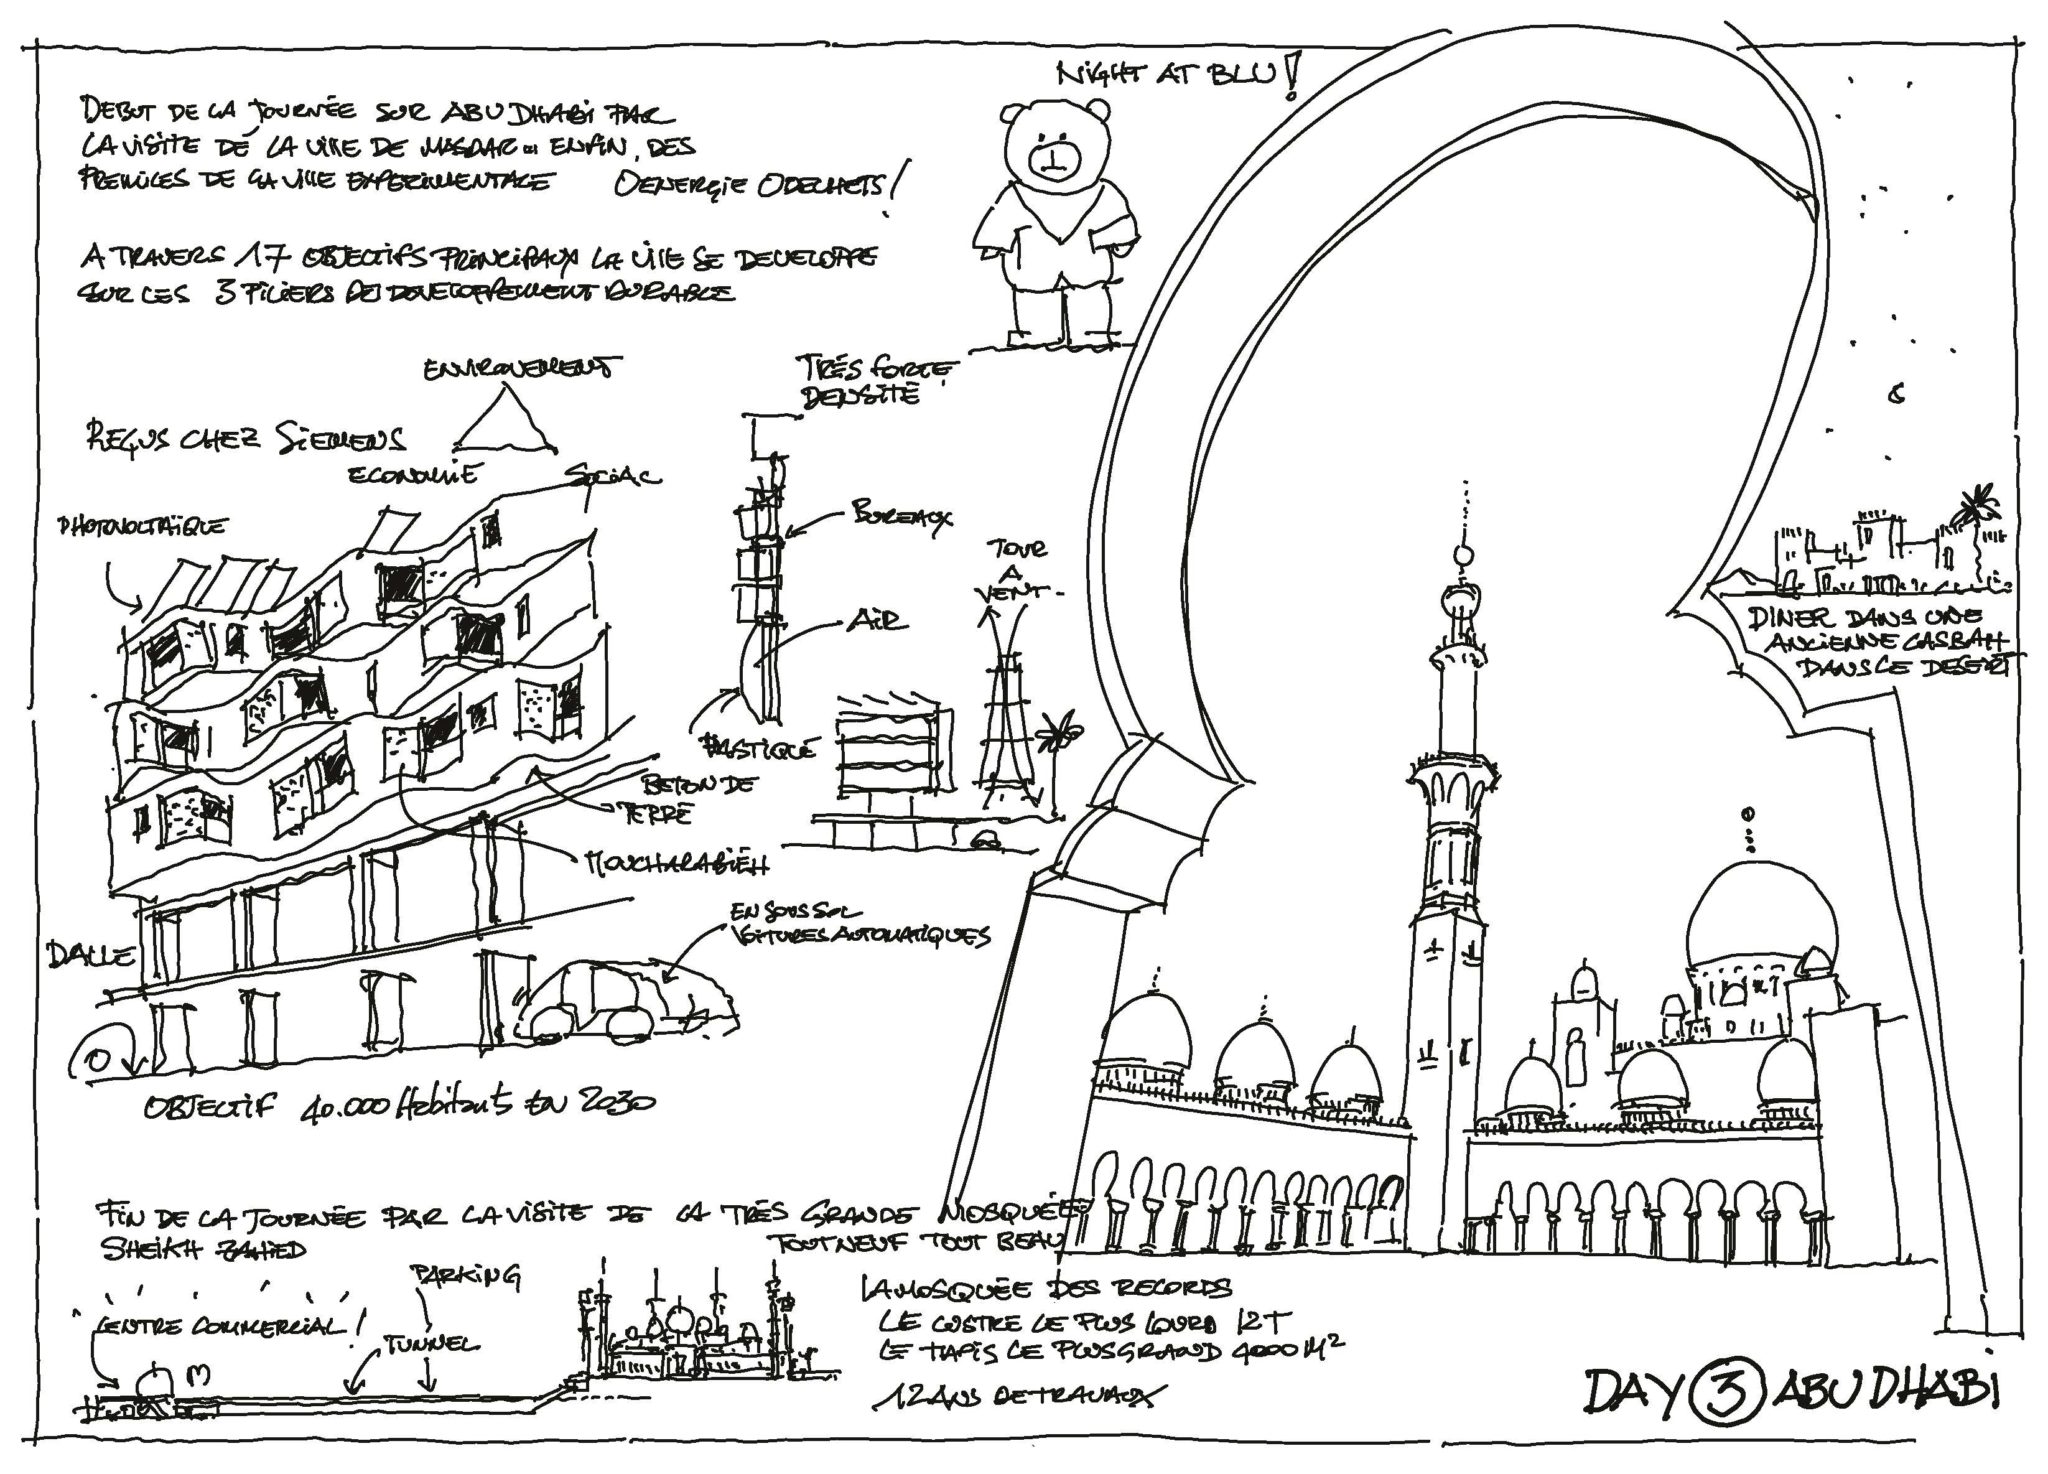 NIGHT AT BLU !
DEBUT DE LA JOURNÉE SUR ABU DHABI PAR
LA VISITE DE LA VILLE DE MASDAR ENFIN, DES
PREMICES DE LA VILLE EXPERIMENTALE 0 ENERGIE 0 DECHETS !
A TRAVERS 17 OBJECTIFS PRINCIPAUX LA VILLE SE DEVELOPPE
SUR LES 3 PILIERS DE DEVELOPPEMENT DURABLE
ENVIRONEMENT
REÇUS CHEZ SIEMENS
ECONOMIE
SOCIAL
PHOTOVOLTAÏQUE
TRÉS FORTE
DENSITÉ
BUREAUX
AIR
PLASTIQUE
TOUR
A
VENT
BETON DE
TERRE
MOUCHARABIÉH
EN SOUS SOL
VOITURES AUTOMATIQUES
DALLE
OBJECTIF 40.000 Habitants EN 2030
DINER DANS UNE
ANCIENNE CASBAH
DANS LE DESERT
FIN DE LA JOURNÉE PAR LA VISITE DE LA TRÉS GRANDE MOSQUÉE
SHEIKH ZAHIED
TOUT NEUF TOUT BEAU
PARKING
CENTRE COMMERCIAL !
TUNNEL
LA MOSQUÉE DES RECORDS
LE LUSTRE LE PLUS LOURD 12T
LE TAPIS LE PLUS GRAND 4000 M²
12 ANS DE TRAVAUX
DAY 3 ABU DHABI